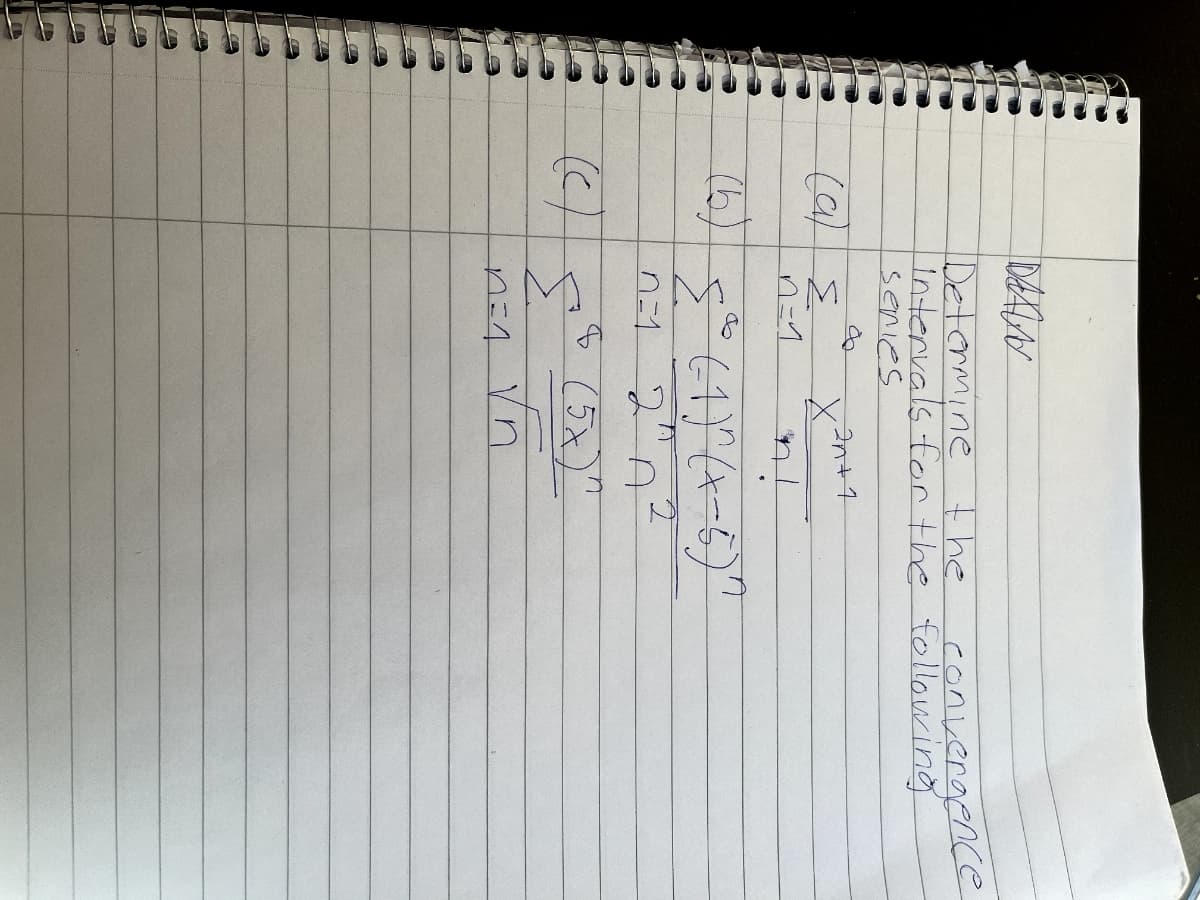 Determine the convergence
Intervals for the following
series
(a) ∞ Σ n=1 x^2n+1 / n!
(b) ∞ Σ n=1 (-1)^n (x-5)^n / 2^n n^2
(c) ∞ Σ n=1 (5x)^n / √n